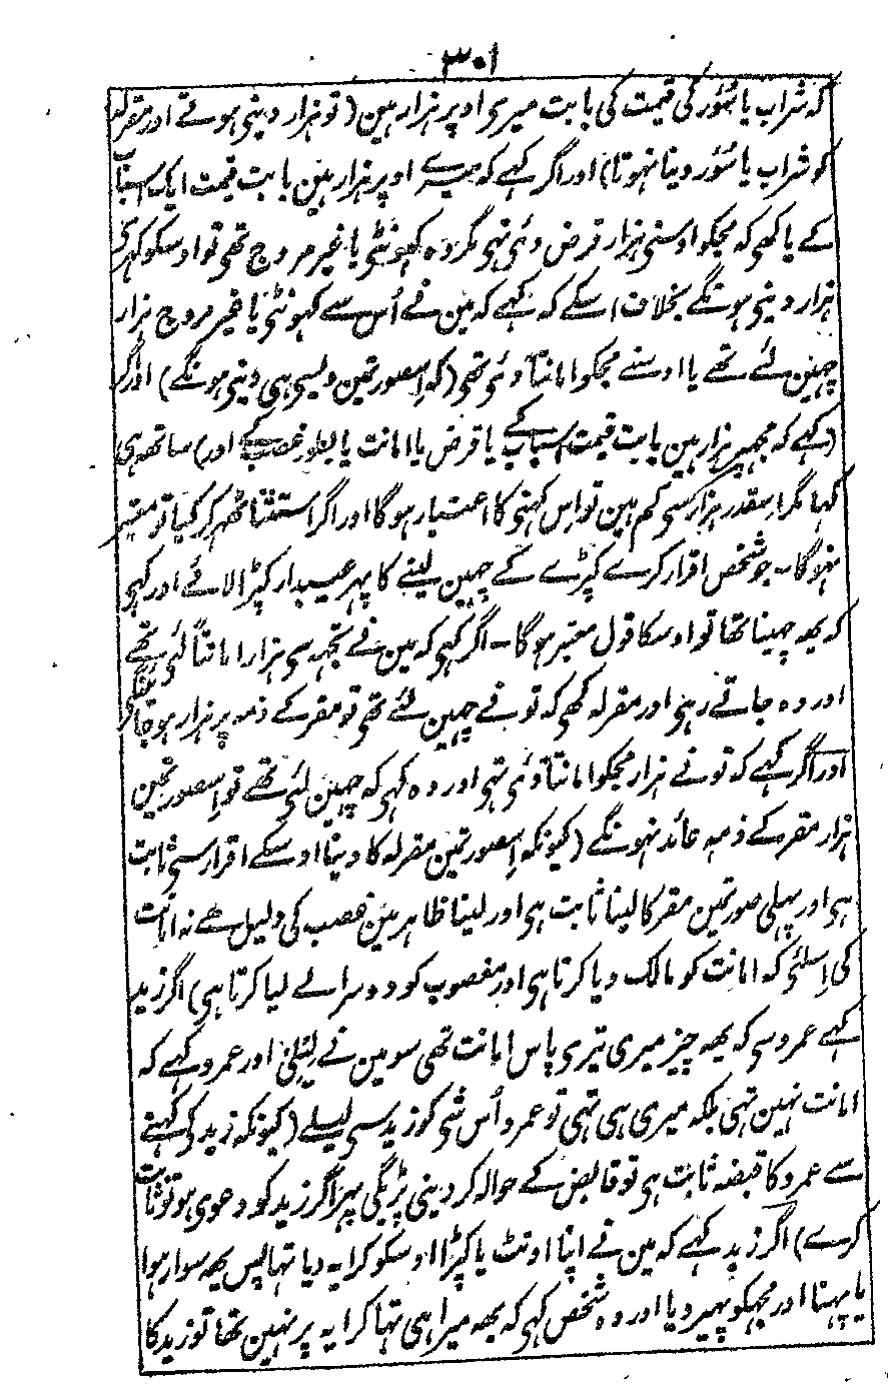 ۳۰۱
کہ شراب یا سُوَر کی قیمت کی بابت میری اوپر ہزار ہین (تو ہزار دینی ہوتے اور مقرلہ
کو شراب یا سُوَر دینا نہوتا) اور اگر کہے کہ میرے اوپر ہزار ہین بابت قیمت ایک اسباب
کے یا کہی کہ مجکو اوسنی ہزار قرض دئی تہی مگر وہ کہونٹی یا غیر مروج تھی تو اوسکو کہری
ہزار دینی ہونگے بخلاف اسکے کہ کہے کہ مین نے اُس سے کہونٹی یا غیر مروج ہزار
چہین لئے تھے یا اوسنے مجکو امانتاً دئی تھی (کہ اِسصورتمین ویسی ہی دینی ہونگے) اور اگر
(کہے کہ مجھپر ہزار ہین بابت قیمت اسباب کے یا قرض یا امانت یا بطور غصب کے اور) ساتھہ ہی
کہا مگر اسقدر ہزار کسی کم ہین تو اِس کہنی کا اعتبار ہوگا اور اگر استثنا ٹھہر کر کیا تو معتبر
نہوگا۔ جو شخص اقرار کرے کپڑے کے چہین لینے کا پہر عیبدار کپڑا لائے اور کہی
کہ یہہ چہینا تھا تو اوسکا قول معتبر ہوگا۔ اگر کہی کہ مین نے تجہہ سی ہزار امانتاً لئی تھے
اور وہ جاتے رہی اور مقرلہ کہی کہ تو نے چہین لئے تھی تو مقر کے ذمہ پر ہزار ہو جائینگی
اور اگر کہے کہ تو نے ہزار مجکو امانتاً دئی تہی اور وہ کہی کہ چہین لئی تھے تو اِسصورتمین
ہزار مقر کے ذمہ عائد نہونگے (کیونکہ اِسصورتمین مقرلہ کا دینا اوسکے اقرار سی ثابت
ہی اور پہلی صورتمین مقر کا لینا ثابت ہی اور لینا ظاہر مین غصب کی دلیل ہے نہ امانت
کی اِسلئی کہ امانت کو مالک دیا کرتا ہی اور مغصوب کو دوسرا لے لیا کرتا ہی) اگر زید
کہے عمرو سی کہ یہہ چیز میری تیری پاس امانت تھی سو مین نے لیلی اور عمرو کہے کہ
امانت نہین تہی بلکہ میری ہی تہی تو عمرو اُس شی کو زید سی لیلے (کیونکہ زید کی کہنے
سے عمرو کا قبضہ ثابت ہی تو قابض کے حوالہ کر دینی پڑیگی پہر اگر زید کو دعوی ہو تو ثابت
کرے) اگر زید کہے کہ مین نے اپنا اونٹ یا کپڑا اوسکو کرایہ دیا تہا پس یہہ سوار ہوا
یا پہنا اور مجہکو پہیر دیا اور وہ شخص کہی کہ یہہ میرا ہی تہا کرایہ پر نہین تھا تو زید کا